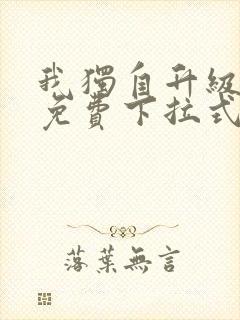 我獨自升級
免費下拉式
落葉無言